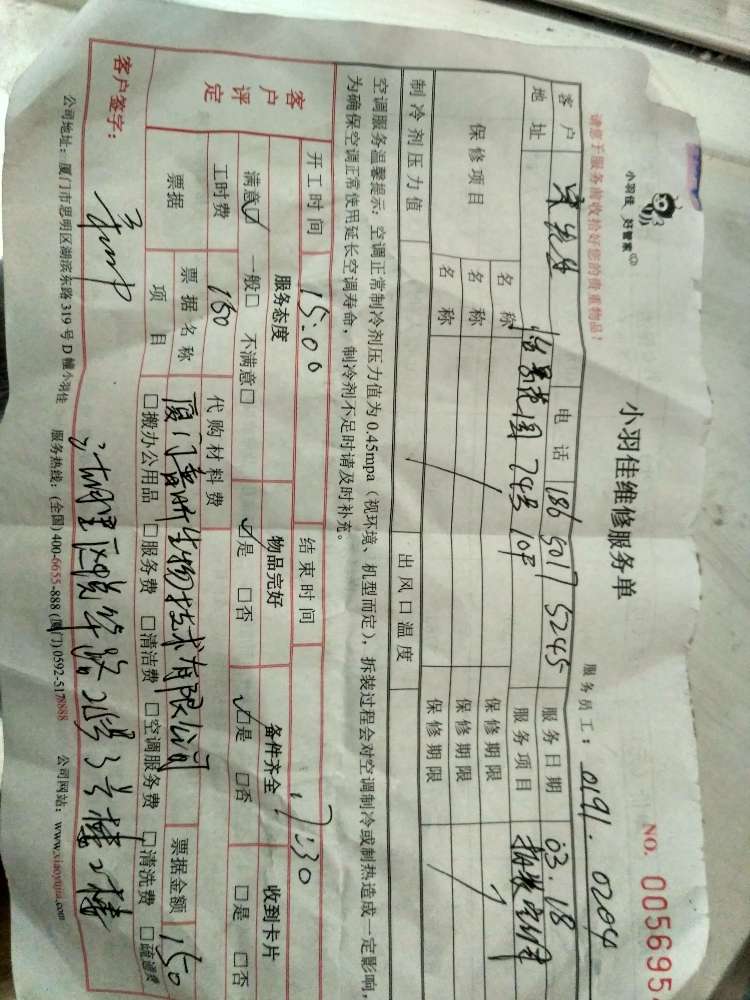 小羽佳 好管家
小羽佳维修服务单
NO. 005695
请您于服务前收拾好您的贵重物品！
服务员工：0191.0204
客户 宋先生 电话 186 5017 5245 服务日期 03.18
地址 怡景花园 74号 10F 服务项目 拆装空调
保修项目 名称 保修期限
名称 保修期限
名称 保修期限
制冷剂压力值 出风口温度
空调服务温馨提示：空调正常制冷剂压力值为0.45mpa（视环境、机型而定），拆装过程会对空调制冷或制热造成一定影响，
为确保空调正常使用延长空调寿命，制冷剂不足时请及时补充。
开工时间 15:00 结束时间 17:30
客户评定 服务态度 物品完好 备件齐全 收到卡片
满意□ 一般□ 不满意□ □是 □否 □是 □否 □是 □否
工时费 150 代购材料费
票据 票据名称 厦门 生物技术有限公司 票据金额 150
项目 □搬办公用品 □服务费 □清洁费 □空调服务费 □清洗费 □疏通费
客户签字：
湖里区 路 号 楼
公司地址：厦门市思明区湖滨东路319号D幢小羽佳 服务热线：(全国) 400-6655-888 (厦门) 0592-5178888 公司网站：www.xiaoyujia.com